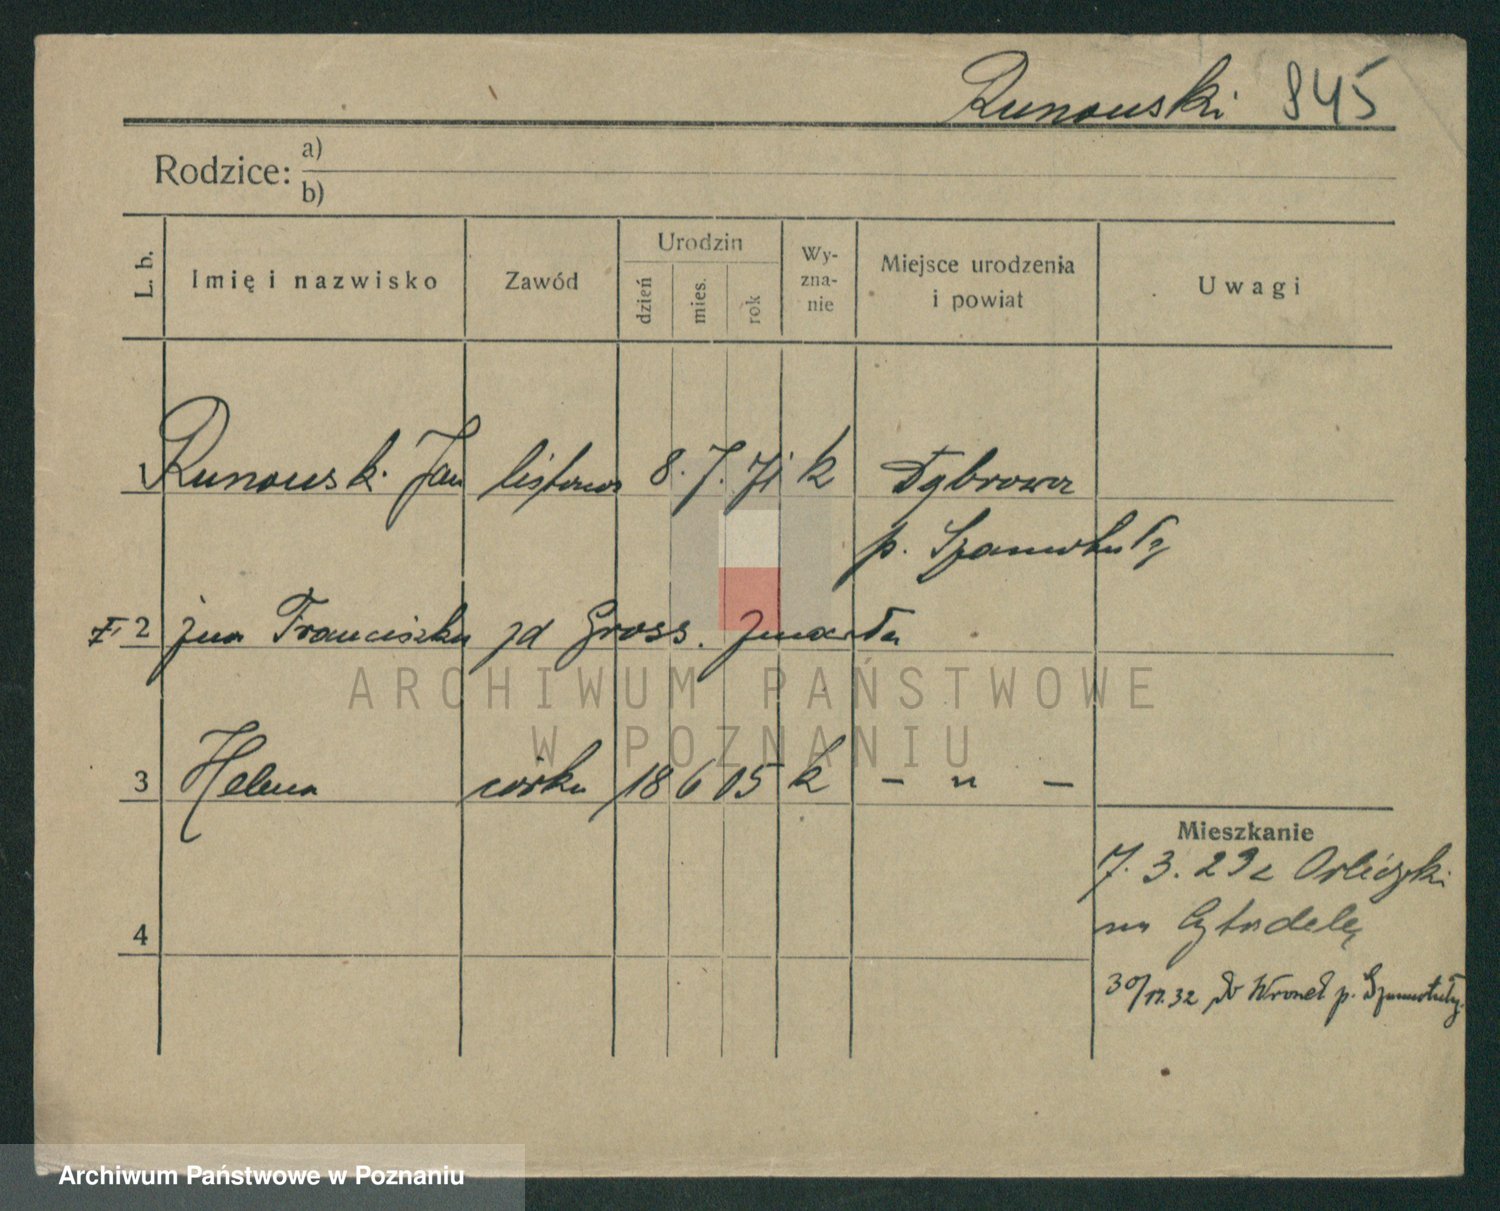 Runowski 845
Rodzice: a)
b)
L. b. Imię i nazwisko Zawód Urodzin dzień mies. rok Wy-zna-nie Miejsce urodzenia i powiat Uwagi
1 Runowski Jan listowy 8. 7. 71 k Dąbrowa
p. Szamotuły
ż. 2 żona Franciszka zd Gross. zmarła
ARCHIWUM PAŃSTWOWE
W POZNANIU
3 Helena córka 18 6 05 k — „ —
Mieszkanie
7. 3. 29 z
na Cytadelę
4
30/11.32 do Wronek p. Szamotuły.
Archiwum Państwowe w Poznaniu